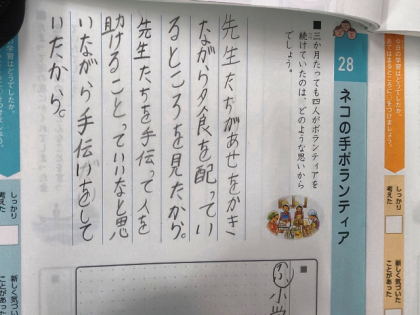 28 ネコの手ボランティア
■三か月たっても四人がボランティアを
続けていたのは、どのような思いから
でしょう。
先生たちがあせをかき
ながら夕食を配ってい
るところを見たから。
先生たちを手伝って人を
助けることっていいなと思
いながら手伝いをして
いたから。
しっかり
考えた
新しく気づいた
ことがあった
しっかり
考えた
新しく気づいた
ことがあった